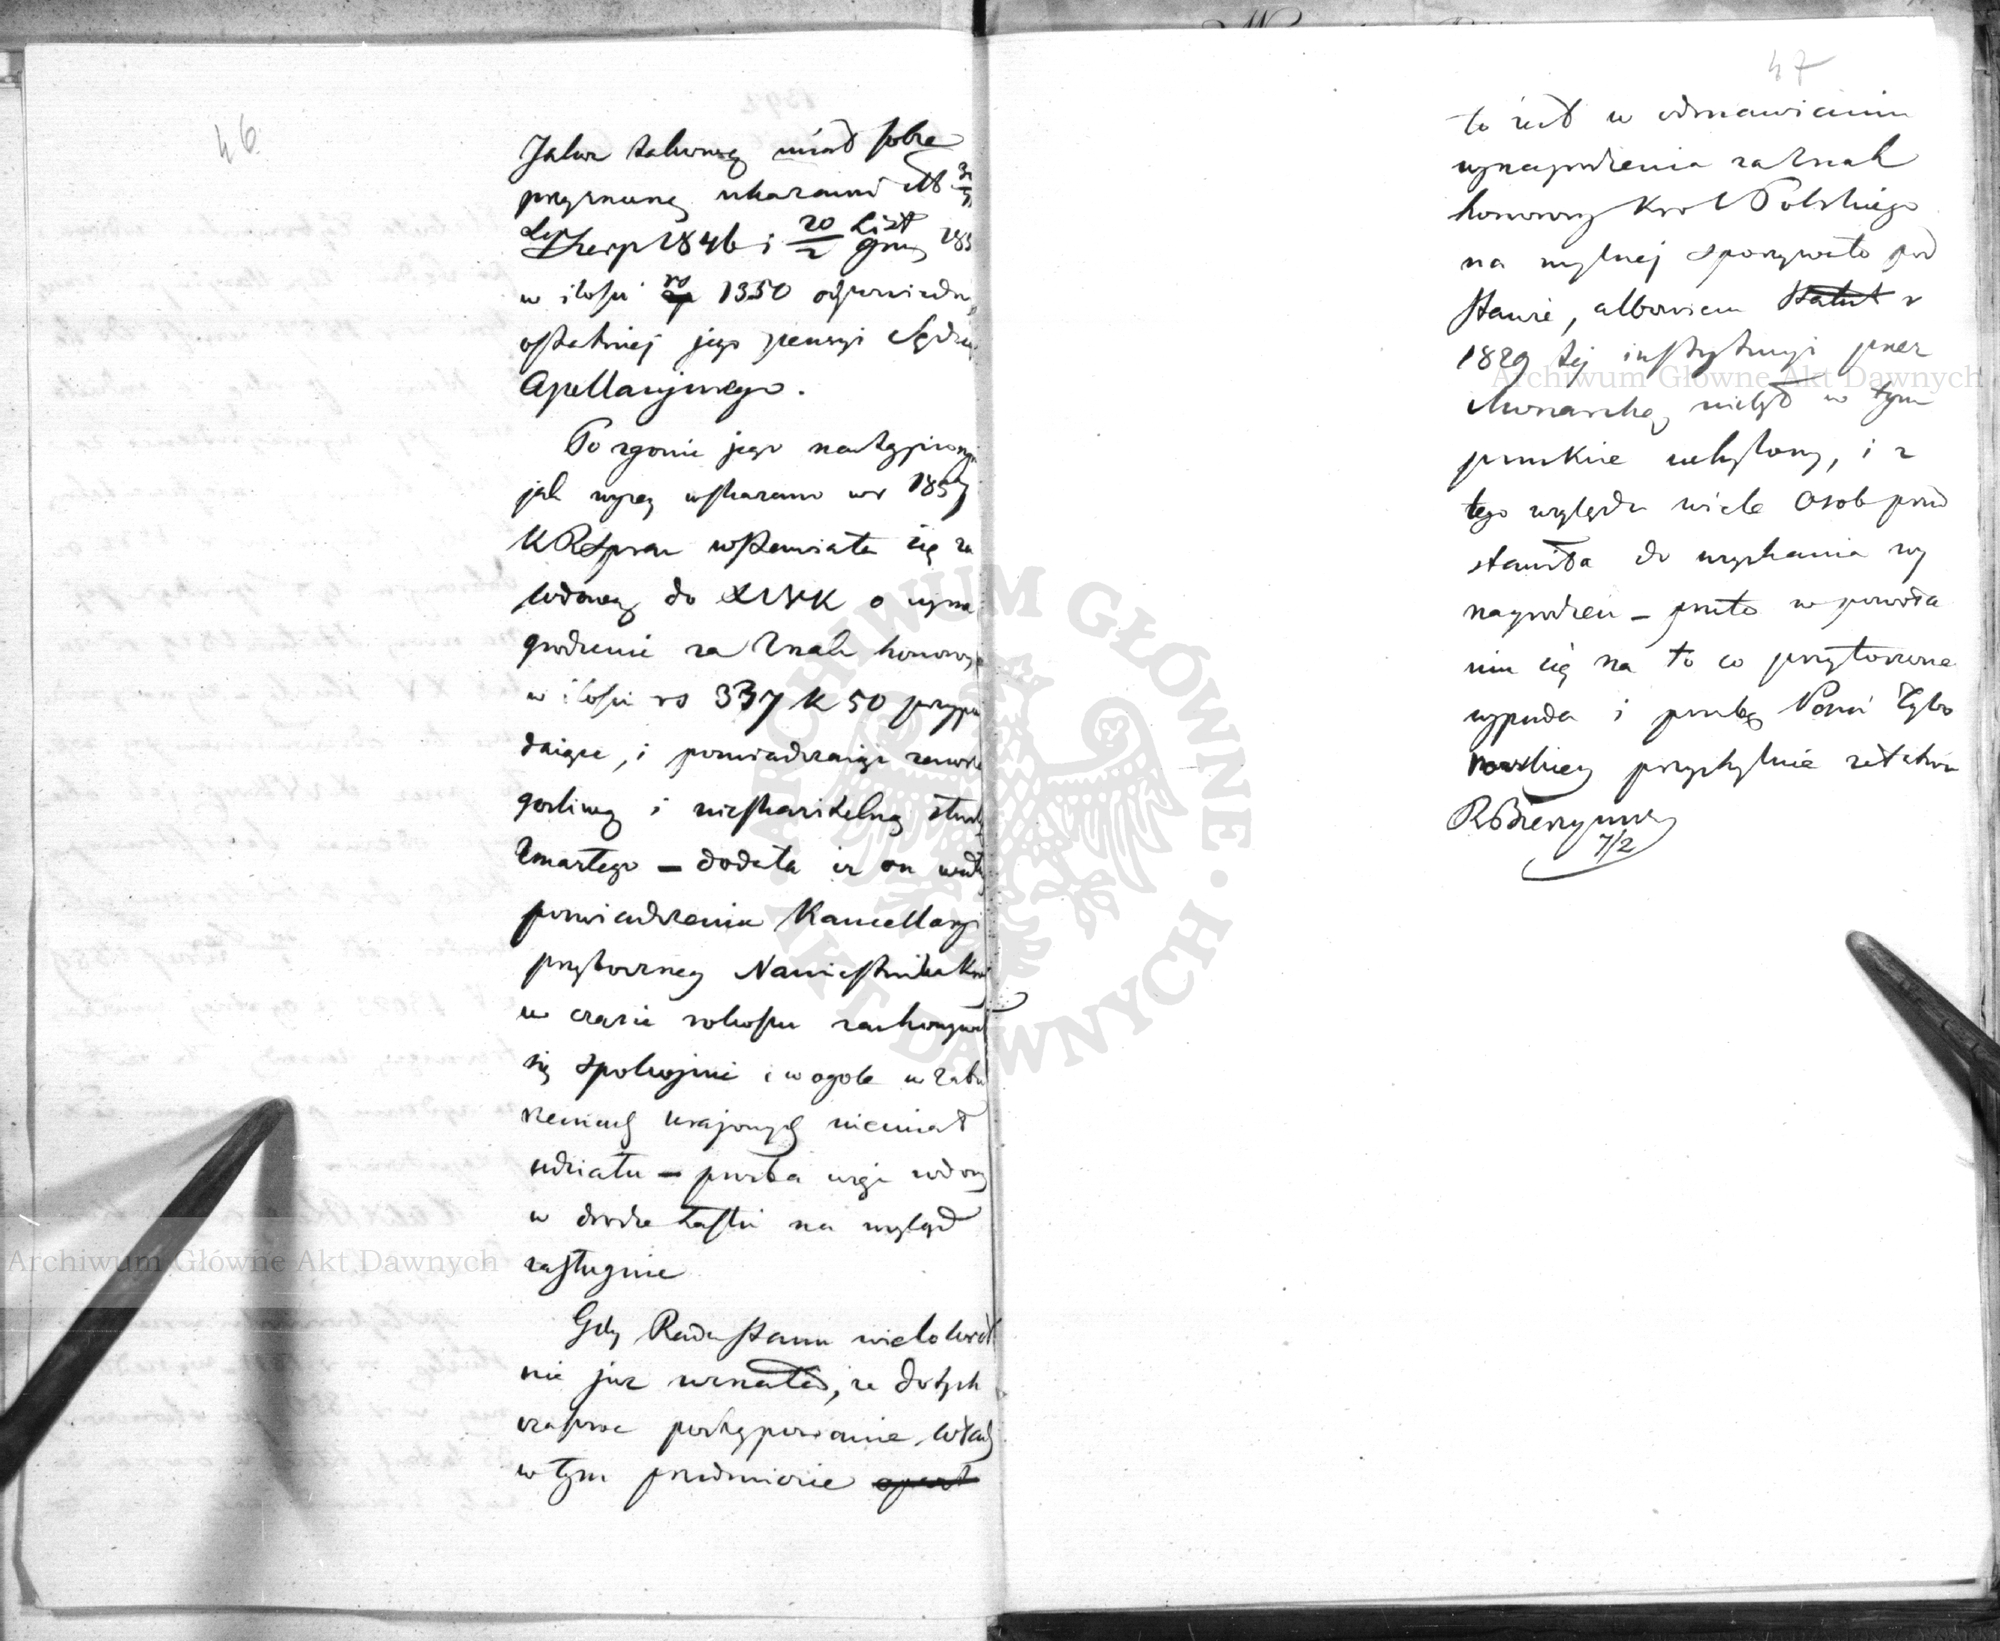 46
Jakoż takowy miał sobie
przyznany ukazami
Sierp 1846 i 20/2 List Gru 185
w ilości rs 1350 odpowiedn
ostatniej jego pensyi Sędzi
Apellacyjnego.
Po zgonie jego nastąpionym
jak wyżej wskazano w r 1857
K R Spraw wstawiała się za
wdową do XIVK o wyna
grodzenie za Znak honorowy
w ilości rs 337 k 50 przypa
daiące, i poświadczaiąc zawsze
gorliwą i nieskazitelną służb
Zmarłego – dodała iż on wedł
poświadczenia Kancellaryi
przybocznej Namiestnika Kró
w czasie rokoszu zachowywał
się spokojnie i w ogóle w zabu
rzeniach krajowych niemiał
udziału – prośba więc wdowy
w drodze łaski na wzgląd
zasługuie
Gdy Rada Stanu wielokrot
nie już uznała, że dotych
czasowe postępowanie władz
w tym przedmiocie
47
to iest w odmawianiu
wynagrodzenia za Znak
honorowy Król Polskiego
na mylnej spoczywało pod
stawie, albowiem Statut r
1829 tej instytucyi przez
Monarchę niebył w tym
punkcie uchylony, i z
tego względu wiele osob przed
stawiła do uzyskania wy
nagrodzeń – przeto w powoła
niu się na to co przytoczone
wypada i prośbę Pani Tybo
rowskiey przychylnie
7/2
Archiwum Główne Akt Dawnych
Archiwum Główne Akt Dawnych
ARCHIWUM GŁÓWNE AKT DAWNYCH